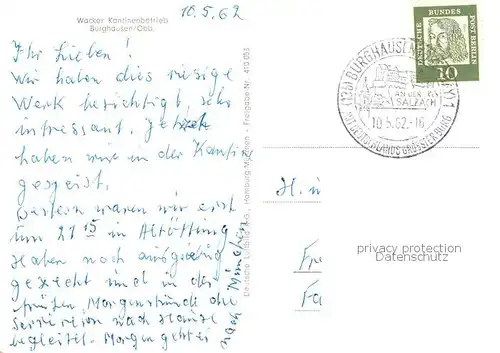 10.5.62
Wacker Kantinenbetrieb
Burghausen/Obb.
Ihr Lieben!
Wir haben dies riesige
Werk besichtigt, sehr
intressant. Jetzt
haben wir in der Kantine
gespeist.
Gestern waren wir erst
um 21 15 in Altötting
Haben noch ausgiebig
gezecht und in der
frühen Morgenstunde die
nach Hause
begleitet. Morgen geht es
nach München
Deutsche Luftbild K.G., Hamburg-München - Freigabe Nr. 410 053
DEUTSCHE BUNDESPOST BERLIN
10
(13b) BURGHAUSEN
AN DER
SALZACH
10.5.62.-16
MIT DEUTSCHLANDS GRÖSSTER BURG
H. u
Fr
Fa
privacy protection
Datenschutz